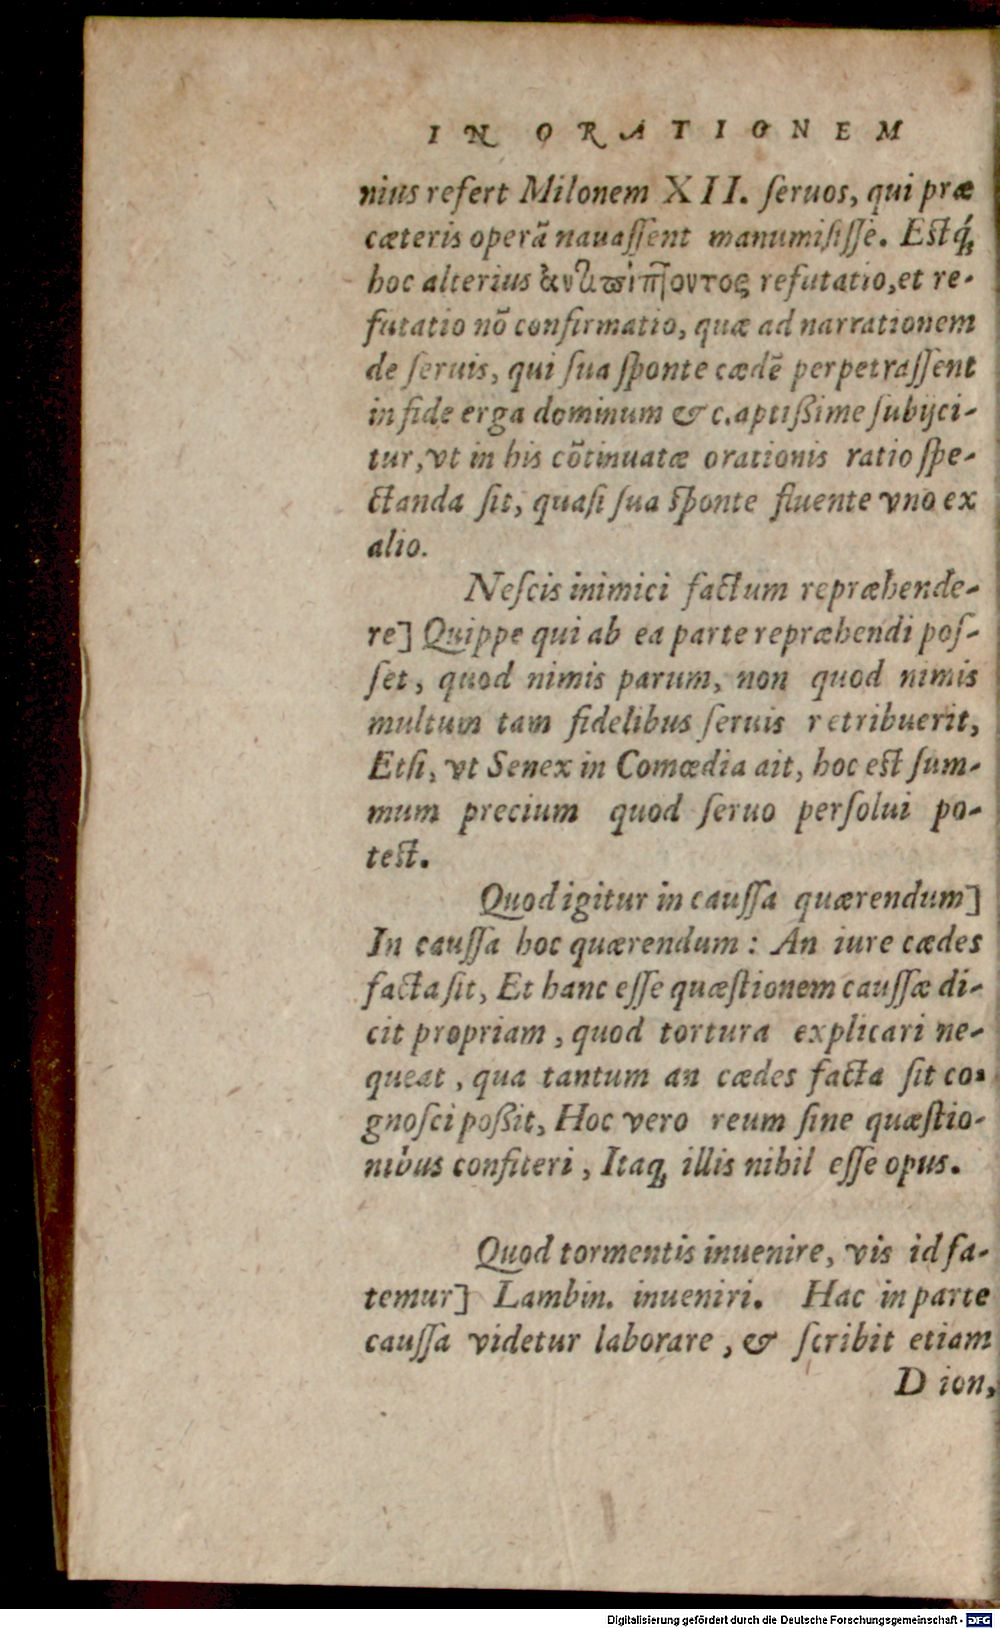 IN ORATIONEM
nius refert Milonem XII. ſeruos, qui præ
cæteris operã nauaſſent manumiſiſſe. Estq́;
hoc alterius refutatio, et re-
futatio nõ confirmatio, quæ ad narrationem
de ſeruis, qui ſua ſponte cædẽ perpetraſſent
in fide erga dominum & c. aptißime ſubijci-
tur, vt in his cõtinuatæ orationis ratio ſpe-
ctanda ſit, quaſi ſua ſponte fluente vno ex
alio.
Neſcis inimici factum repræhende-
re] Quippe qui ab ea parte repræhendi poſ-
ſet, quod nimis parum, non quod nimis
multum tam fidelibus ſeruis retribuerit,
Etſi, vt Senex in Comœdia ait, hoc est ſum-
mum precium quod ſeruo perſolui po-
test.
Quod igitur in cauſſa quærendum]
In cauſſa hoc quærendum: An iure cædes
facta ſit, Et hanc eſſe quæſtionem cauſſæ di-
cit propriam, quod tortura explicari ne-
queat, qua tantum an cædes facta ſit co-
gnoſci poßit, Hoc vero reum ſine quæſtio-
nibus confiteri, Itaq; illis nihil eſſe opus.
Quod tormentis inuenire, vis id fa-
temur] Lambin. inueniri. Hac in parte
cauſſa videtur laborare, & ſcribit etiam
Dion,
Digitalisierung gefördert durch die Deutsche Forschungsgemeinschaft - DFG